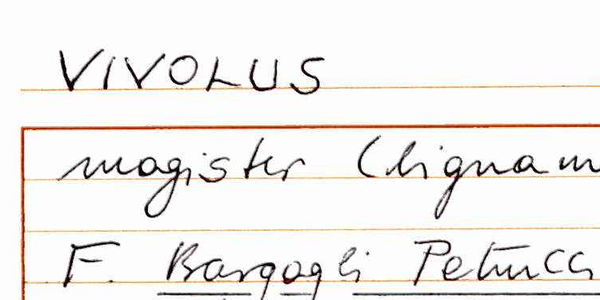 VIVOLUS
magister (lignam
F. Bargagli Petrucci